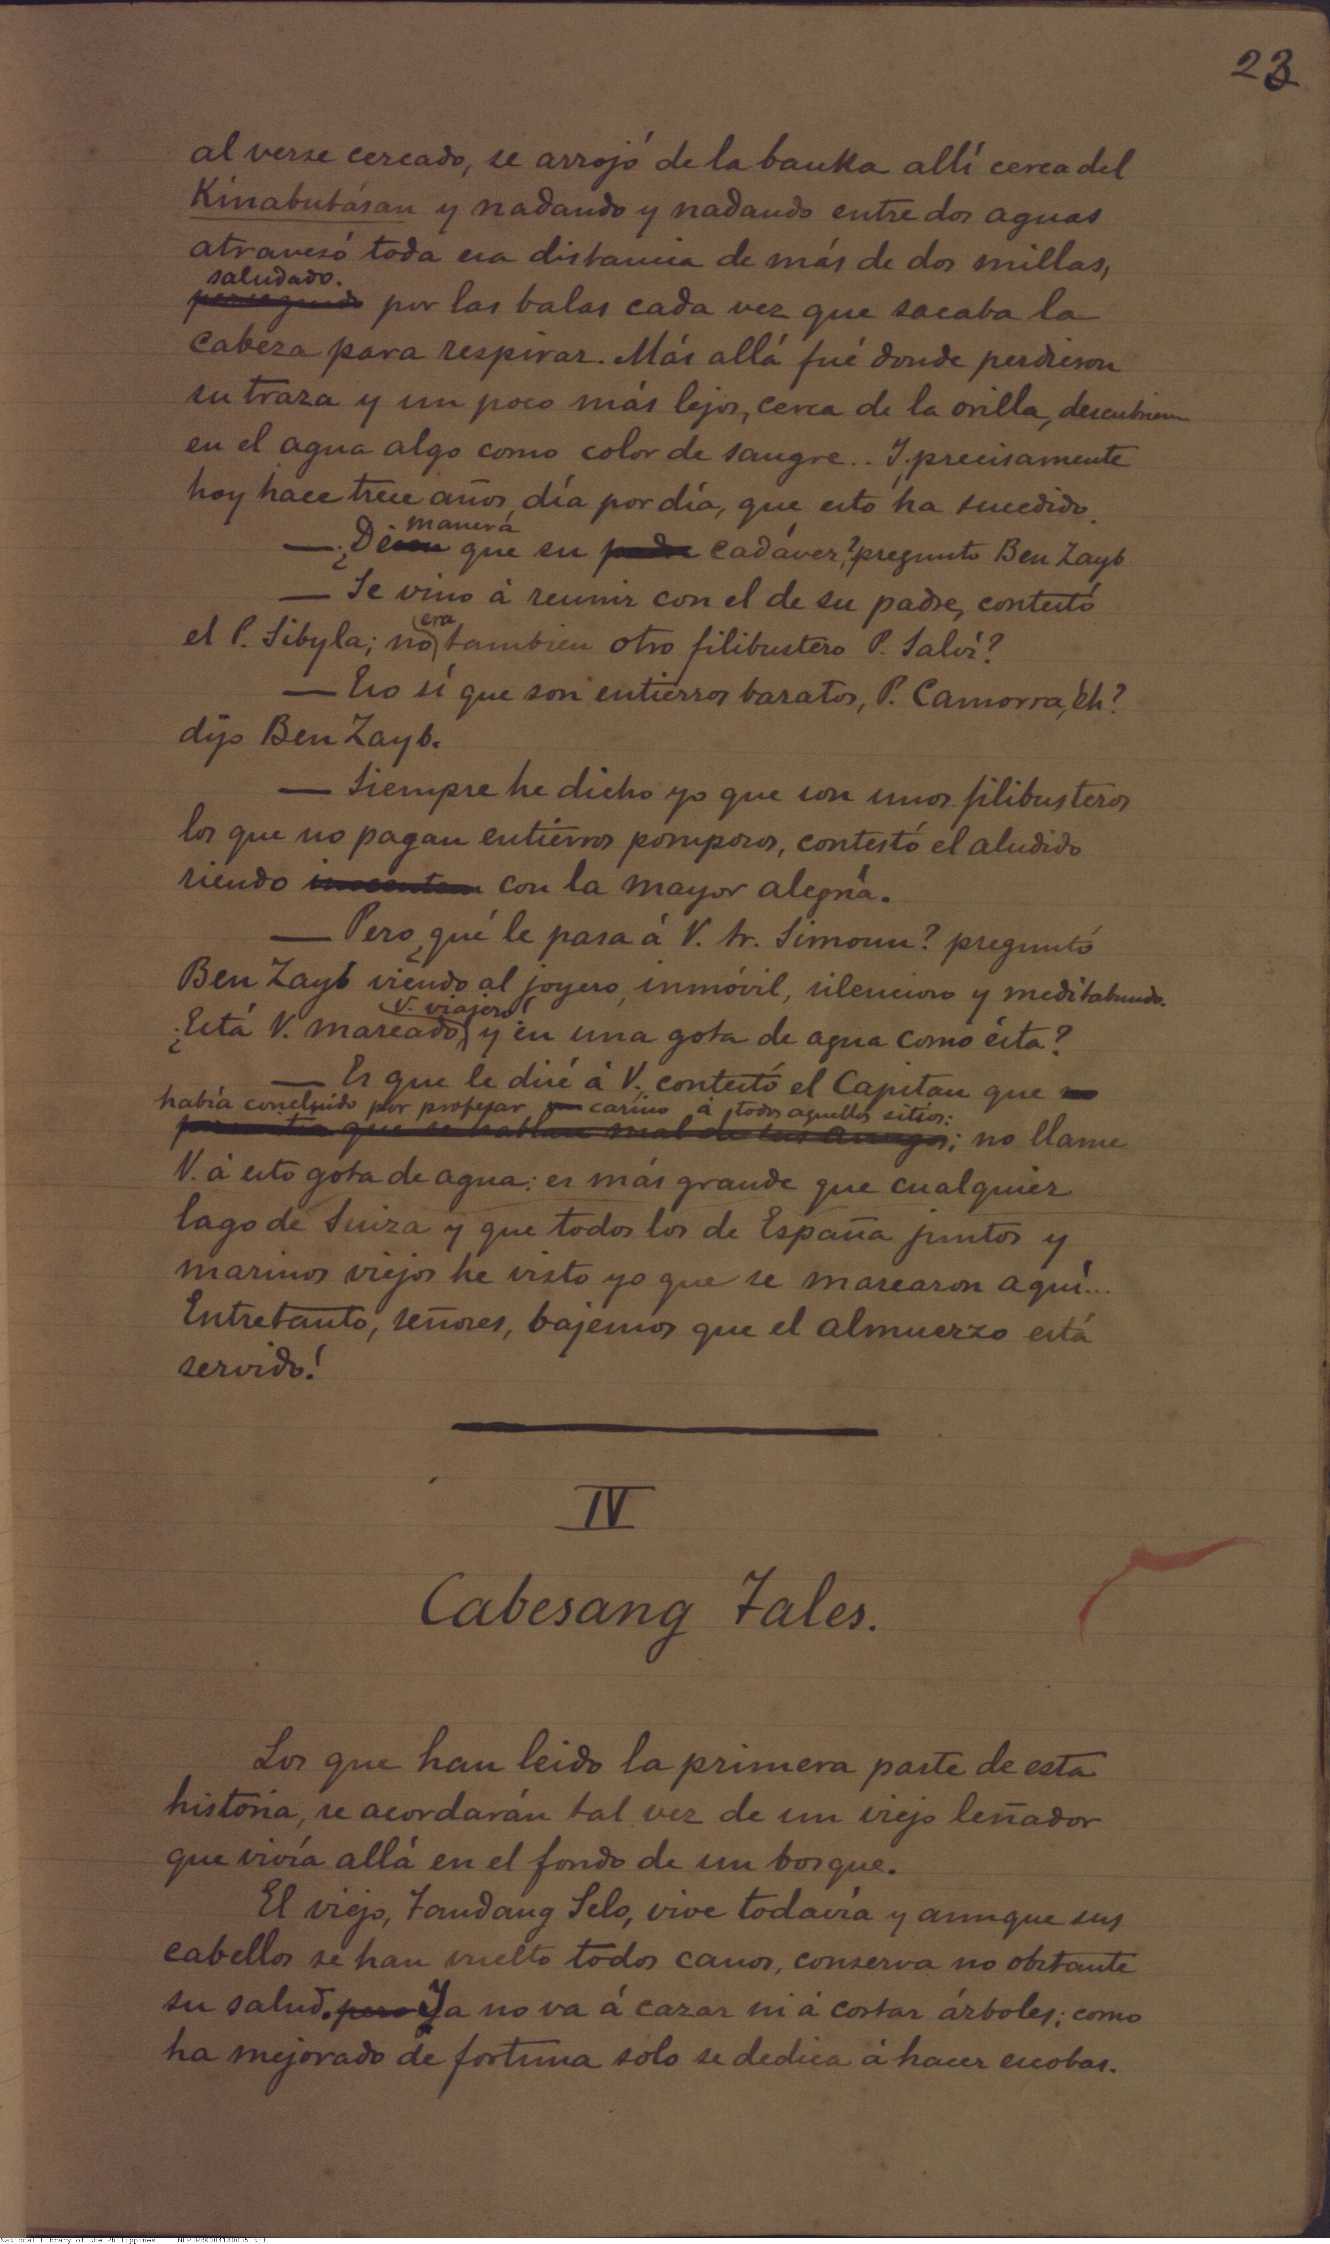 23
al verse cercado, se arrojó de la banka allí cerca del
Kinabutásan y nadando y nadando entre dos aguas
atravesó toda esa distancia de más de dos millas,
saludado.
perseguido por las balas cada vez que sacaba la
cabeza para respirar. Más allá fué donde perdieron
su traza y un poco más lejos, cerca de la orilla, descubrieron
en el agua algo como color de sangre.. Y precisamente
hoy hace trece años, día por día, que esto ha sucedido.
manera
— ¿De que su padre cadáver? preguntó Ben Zayb
— Se vino á reunir con el de su padre, contestó
era
el P. Sibyla; no tambien otro filibustero P. Salví?
— Eso sí que son entierros baratos, P. Camorra, eh?
dijo Ben Zayb.
— Siempre he dicho yo que son unos filibusteros
los que no pagan entierros pomposos, contestó el aludido
riendo con la mayor alegría.
— Pero ¿qué le pasa á V. Sr. Simoun? preguntó
Ben Zayb viendo al joyero, inmóvil, silencioso y meditabundo.
V. viajero!
¿Está V. mareado, y en una gota de agua como ésta?
— Es que le diré á V. contestó el Capitan que
había concluido por profesar cariño á todos aquellos sitios:
que se hablase mal de sus amigos; no llame
V. á esto gota de agua: es más grande que cualquier
lago de Suiza y que todos los de España juntos y
marinos viejos he visto yo que se marearon aquí...
Entretanto, señores, bajemos que el almuerzo está
servido!
IV
Cabesang Tales.
Los que han leido la primera parte de esta
historia, se acordarán tal vez de un viejo leñador
que vivía allá en el fondo de un bosque.
El viejo, Tandang Selo, vive todavía y aunque sus
cabellos se han vuelto todos canos, conserva no obstante
su salud. pero Ya no va á cazar ni á cortar árboles; como
ha mejorado de fortuna solo se dedica á hacer escobas.